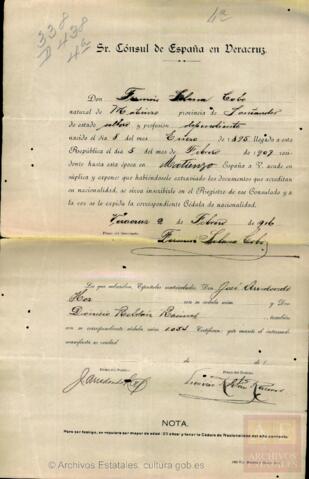 4ª
338
D 438
4ª
Sr. Cónsul de España en Veracruz.
Don Francisco Cobo
natural de provincia de Santander
de estado soltero y profesión dependiente
nacido el día 8 del mes de Enero de 1895, llegado a esta
República el día 5 del mes de Febrero de 1907 resi-
dente hasta esta época en Matienzo España a V. acude en
súplica y expone que habiéndosele extraviado los documentos que acreditan
su nacionalidad, se sirva inscribirle en el Registro de ese Consulado y a
la vez se le expida la correspondiente Cédula de nacionalidad.
Veracruz 2 de Febrero de 1916
Firma del Interesado,
Francisco Cobo
Los que suscriben, Españoles matriculados, Don José Arredondo
con su cédula núm. y Don
Dionisio Roldán Ramos también
con su correspondiente cédula núm. 1054 Certifican: que cuanto el interesado
manifiesta es verdad
de de 1
Firma del Testigo, Firma del Testigo,
J. Arredondo Dionisio Roldán Ramos
NOTA.
Para ser testigo, se requiere ser mayor de edad (23 años) y tener la Cédula de Nacionalidad del año corriente.
ARCHIVOS
ESTATALES
© Archivos Estatales. cultura.gob.es